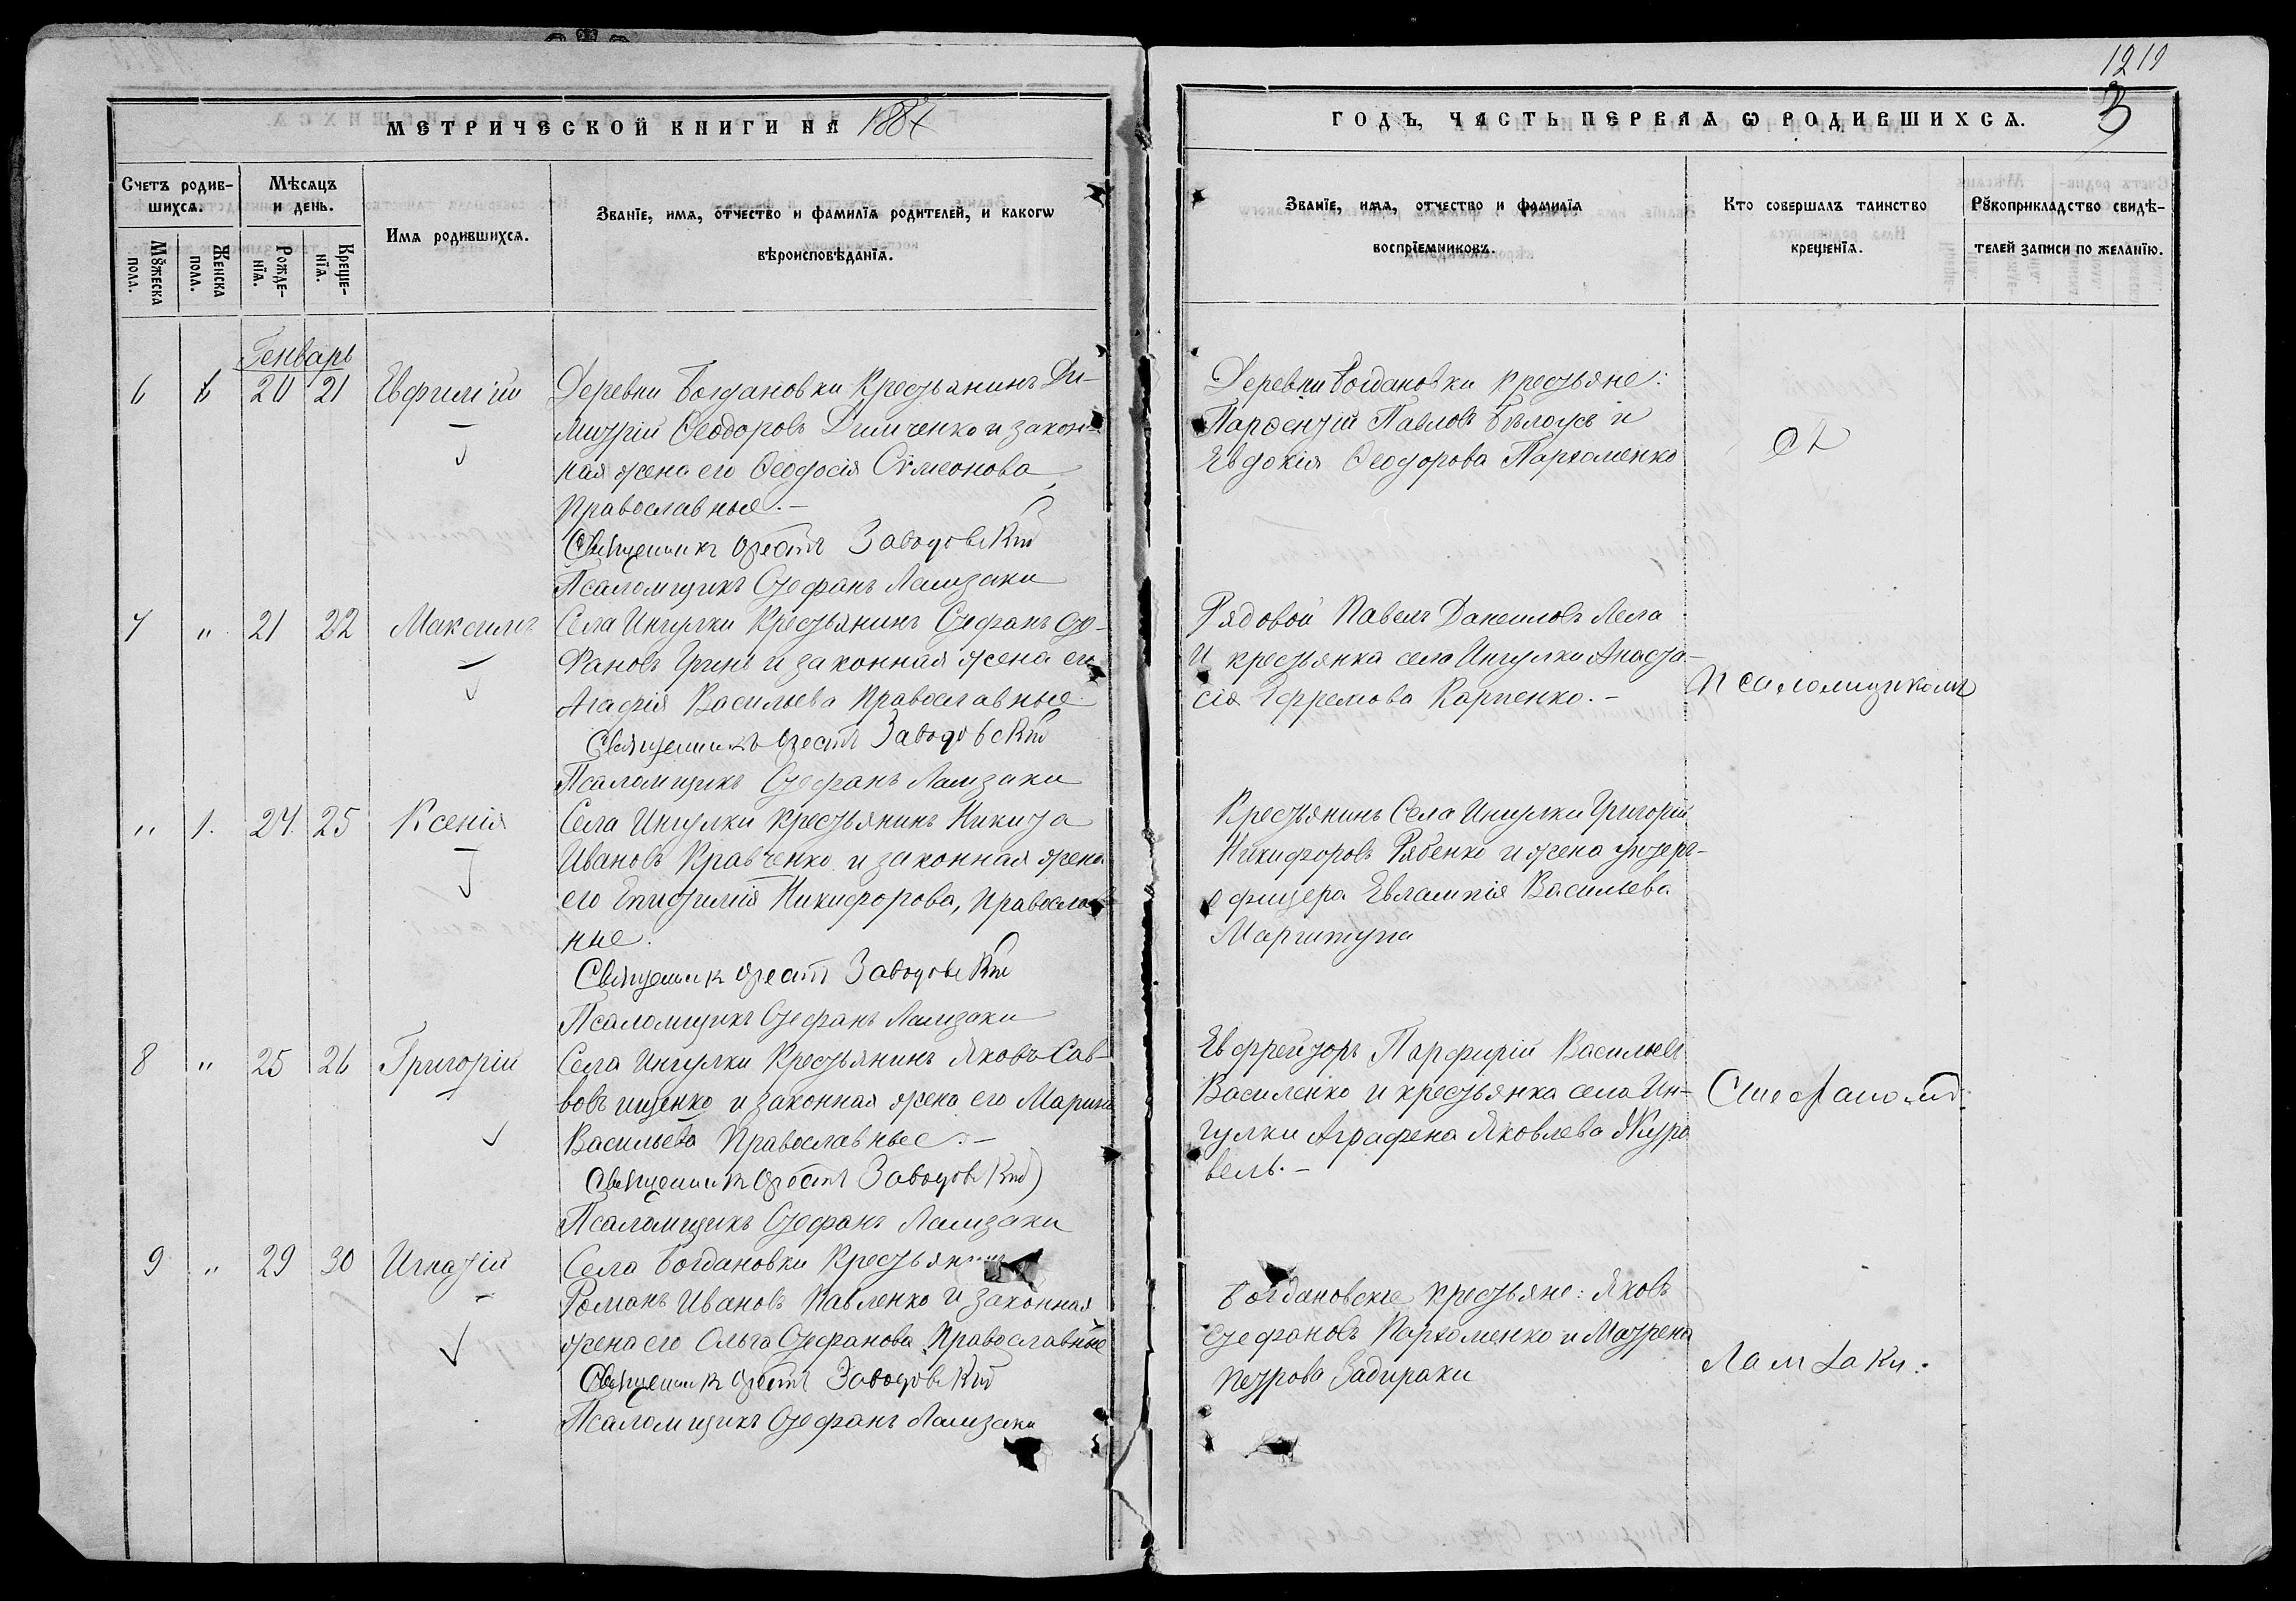 1219
3
МЕТРИЧЕСКОЙ КНИГИ НА 1884
ГОДЪ, ЧАСТЬ ПЕРВАЯ Ѡ РОДИВШИХСѦ.
Счетъ родив-
шихсѧ.
Мѣсѧцъ
и день.
Имѧ родившихсѧ.
Званїе, имѧ, отчество и фамилїѧ родителей, и какогѡ
вѣроисповѣданїѧ.
Мꙋжеска
пола.
Женска
пола.
Рожде-
нїѧ.
Креще-
нїѧ.
Званїе, имѧ, отчество и фамилїѧ
воспрїемниковъ.
Кто совершалъ таинство
крещенїѧ.
Рꙋкоприкладство свидѣ-
телей записи по желанїю.
Генварь
6 20 21 Евфимій
Деревни Богдановки Крестьянинъ Ди-
митрій Ѳеодоровъ Димченко и закон-
ная жена его Ѳеодосія Симеонова,
Православные.-
Священникъ Орестъ Заводовскій
Псаломщикъ Стефанъ Ламзаки
Деревни Богдановки крестьяне:
Парѳентій Павловъ Бѣлоусъ и
Евдокія Ѳеодорова Пархоменко
съ
7 " 21 22 Максимъ
Села Ингулки Крестьянинъ Стефанъ Сте-
фановъ и законная жена его
Агафія Васильева Православные
Священникъ Орестъ Заводовскій
Псаломщикъ Стефанъ Ламзаки
Рядовой Павелъ Даниловъ Лега
и крестьянка села Ингулки Анаста-
сія Ефремова Карпенко.-
Псаломщикомъ
" 1. 24. 25 Ксенія
Села Ингулки Крестьянинъ Никита
Ивановъ Кравченко и законная жена
его Епистимія Никифорова, Православ-
ные.
Священникъ Орестъ Заводовскій
Псаломщикъ Стефанъ Ламзаки
Крестьянинъ Села Ингулки Григорій
Никифоровъ Рябенко и жена унтеръ-
офицера Евлампія Васильева
8 " 25 26 Григорій
Села Ингулки Крестьянинъ Яковъ Сав-
вовъ Ищенко и законная жена его Марина
Васильева Православные.-
Священникъ Орестъ Заводовскій
Псаломщикъ Стефанъ Ламзаки
Евфрейторъ Парфирій Васильевъ
Василенко и крестьянка села Ин-
гулки Аграфена Яковлева Жура
вель.-
Стефаномъ
9 " 29 30 Игнатій
Села Богдановки Крестьянинъ
Романъ Ивановъ Павленко и законная
жена его Ольга Стефанова, Православные
Священникъ Орестъ Заводовскій
Псаломщикъ Стефанъ Ламзаки
Богдановскіе крестьяне: Яковъ
Стефановъ Пархоменко и Матрена
Петрова Задираки
Ламзаки.